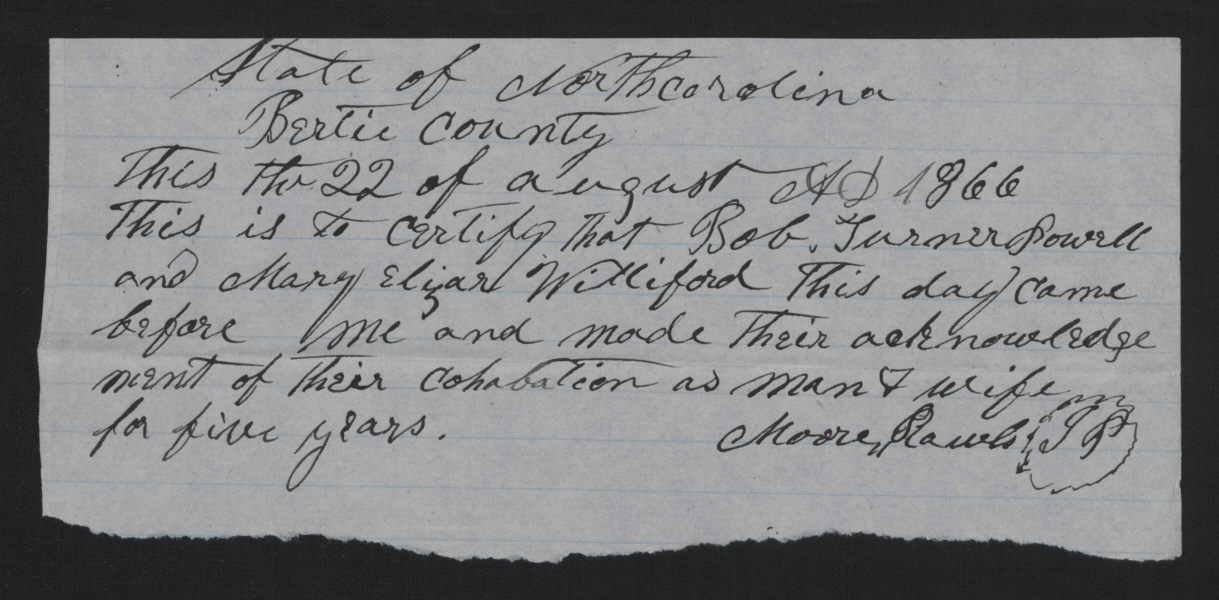 State of Northcarolina
Bertie County
This the 22 of august AD 1866
This is to certify that Bob. Turner Powell
and Mary Elizar Williford This day came
before me and made Their acknowledge
ment of their cohabation as man & wife
for five years. Moore, Rawls JP